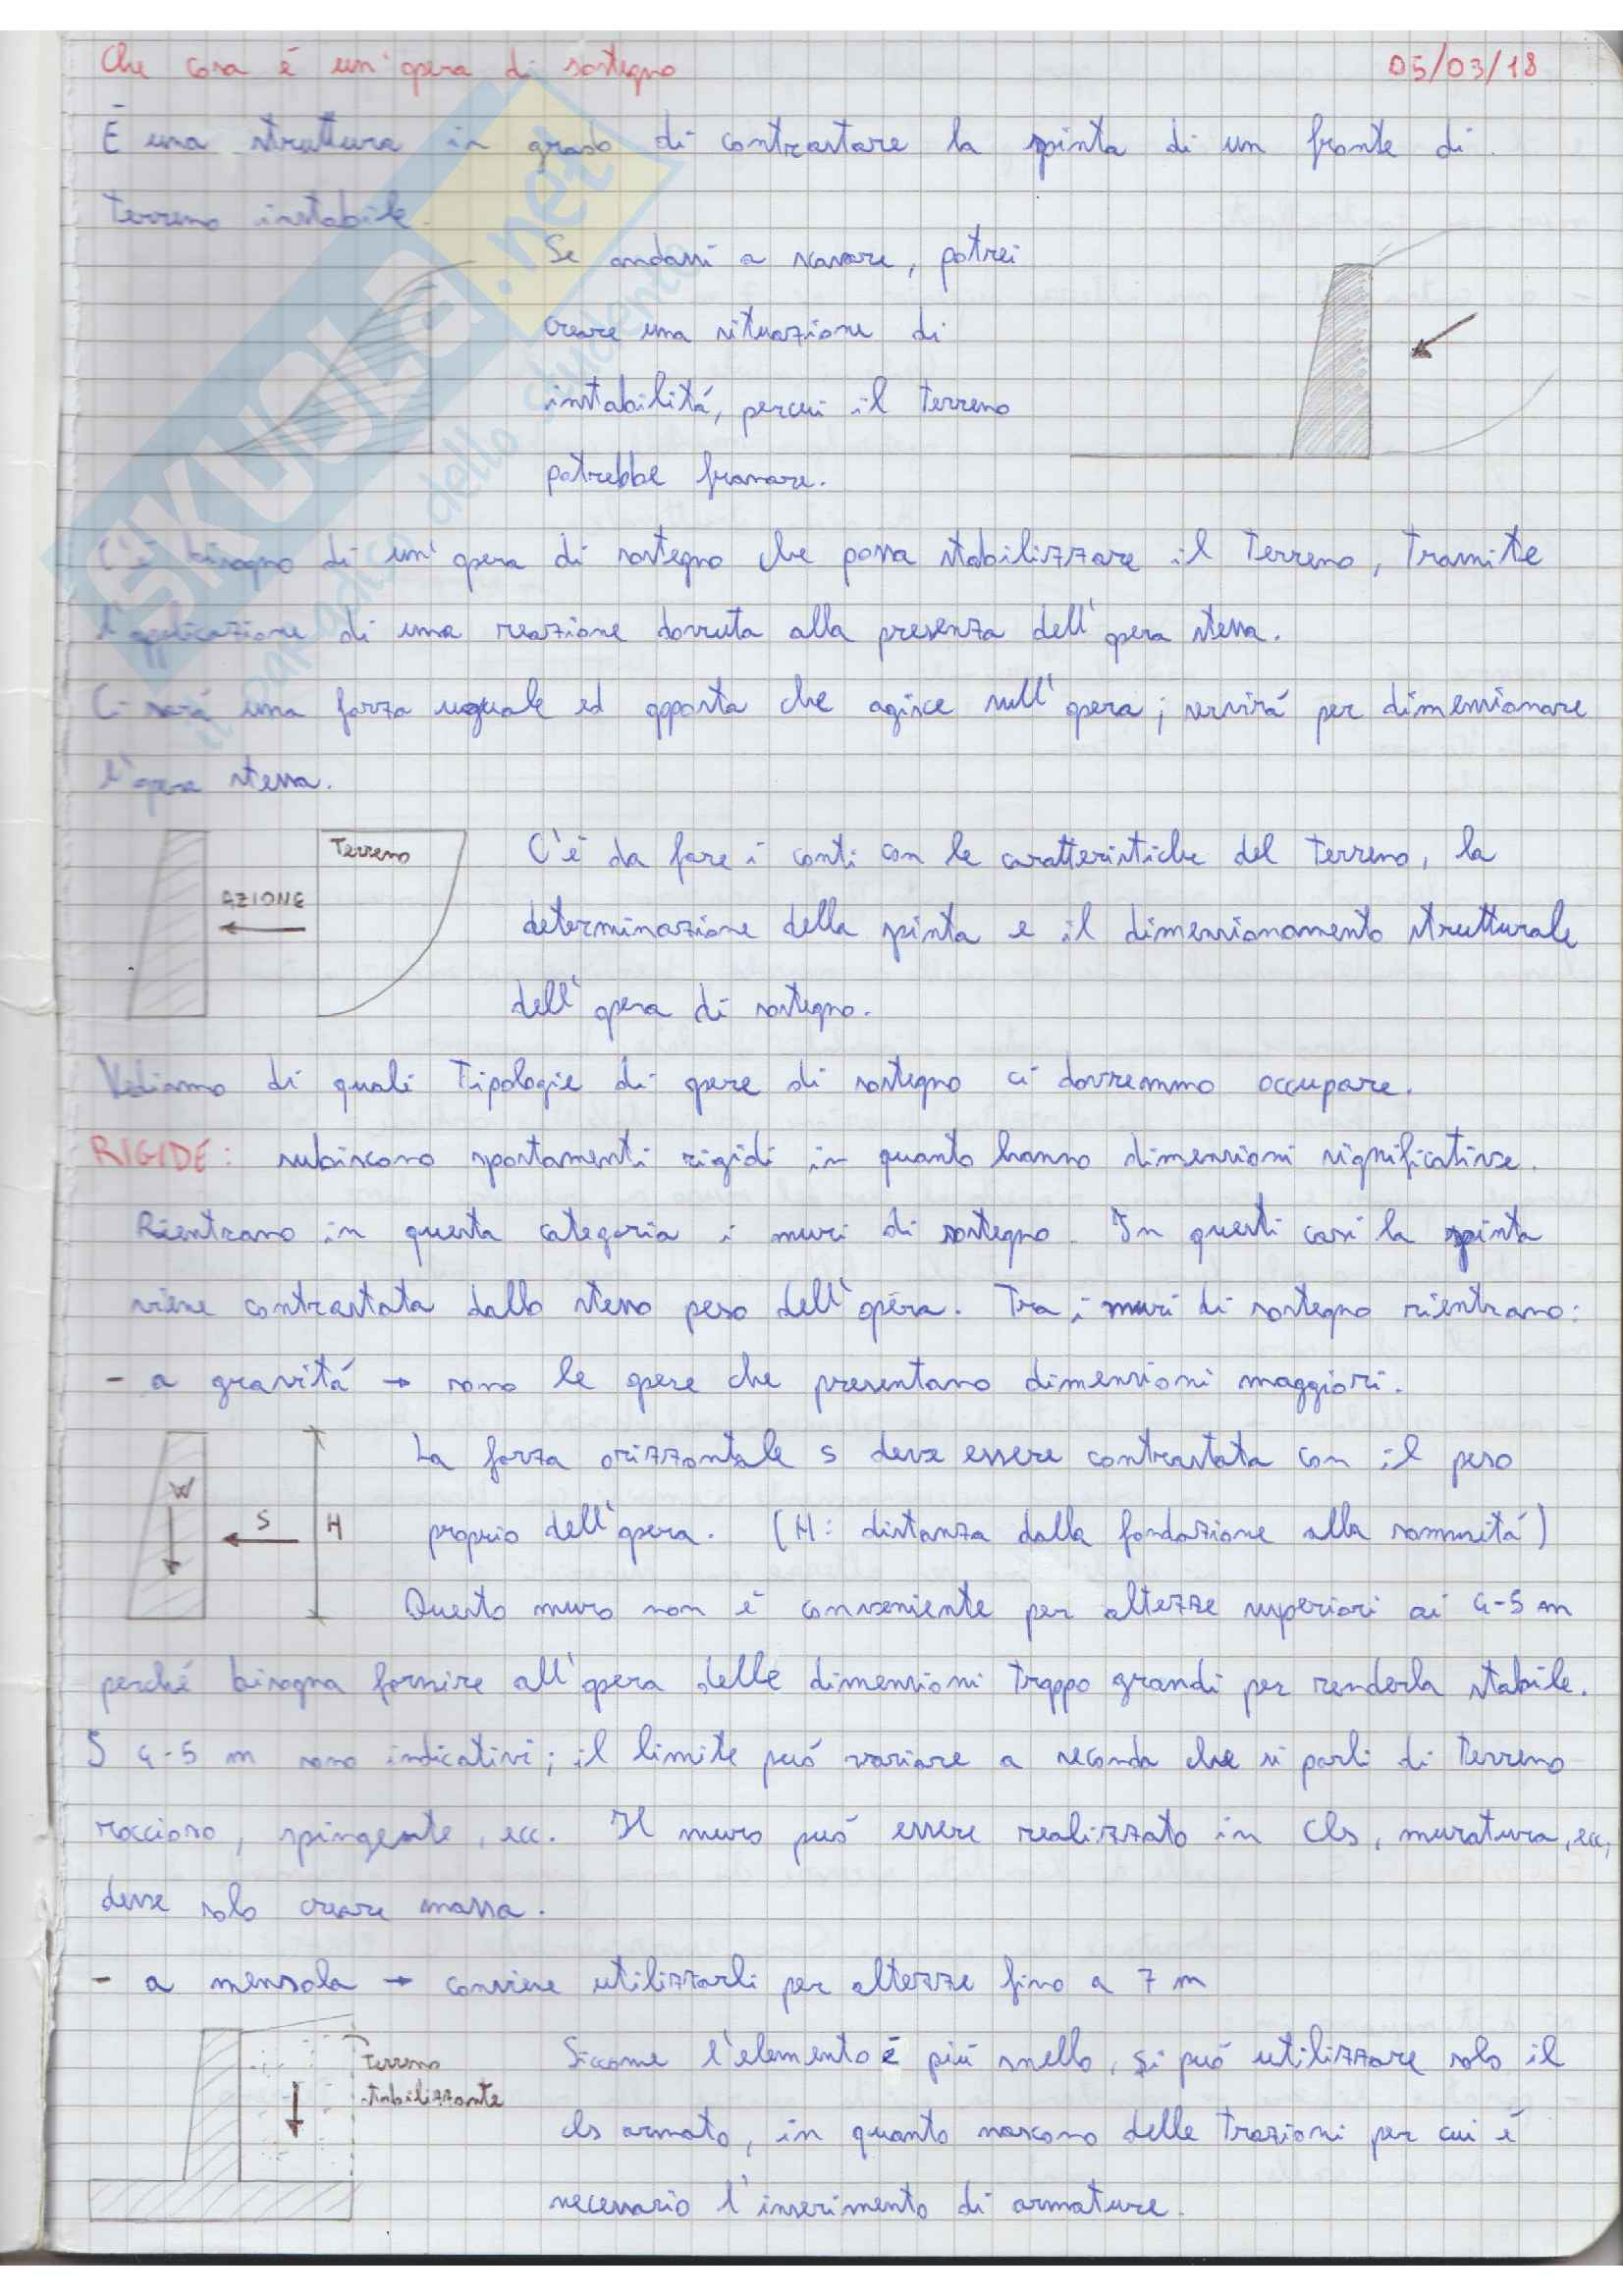 Che cosa é un'opera di sostegno 05/03/18
É una struttura in grado di contrastare la spinta di un fronte di
terreno instabile.
Se andassi a scavare, potrei
creare una situazione di
instabilitá, percui il terreno
potrebbe franare.
C'é bisogno di un'opera di sostegno che possa stabilizzare il terreno, tramite
l'applicazione di una reazione dovuta alla presenza dell'opera stessa.
Ci sará una forza uguale ed opposta che agisce sull'opera; servirá per dimensionare
l'opera stessa.
Terreno
AZIONE
C'é da fare i conti con le caratteristiche del terreno, la
determinazione della spinta e il dimensionamento strutturale
dell'opera di sostegno.
Vediamo di quali tipologie di opere di sostegno ci dovremmo occupare.
RIGIDE: subiscono spostamenti rigidi in quanto hanno dimensioni significative.
Rientrano in questa categoria i muri di sostegno. In questi casi la spinta
viene contrastata dallo stesso peso dell'opera. Tra i muri di sostegno rientrano:
- a gravitá → sono le opere che presentano dimensioni maggiori.
W
S
H
La forza orizzontale S deve essere contrastata con il peso
proprio dell'opera. (H: distanza dalla fondazione alla sommitá)
Questo muro non é conveniente per altezze superiori ai 4-5 m
perché bisogna fornire all'opera delle dimensioni troppo grandi per renderla stabile.
I 4-5 m sono indicativi; il limite puó variare a seconda che si parli di terreno
roccioso, spingente, ecc. Il muro puó essere realizzato in cls, muratura, ecc,
deve solo creare massa.
- a mensola → conviene utilizzarli per altezze fino a 7 m
Terreno
stabilizzante
Siccome l'elemento é piú snello, si puó utilizzare solo il
cls armato, in quanto nascono delle trazioni per cui é
necessario l'inserimento di armature.
SKUOLA.net
il paradiso dello studente